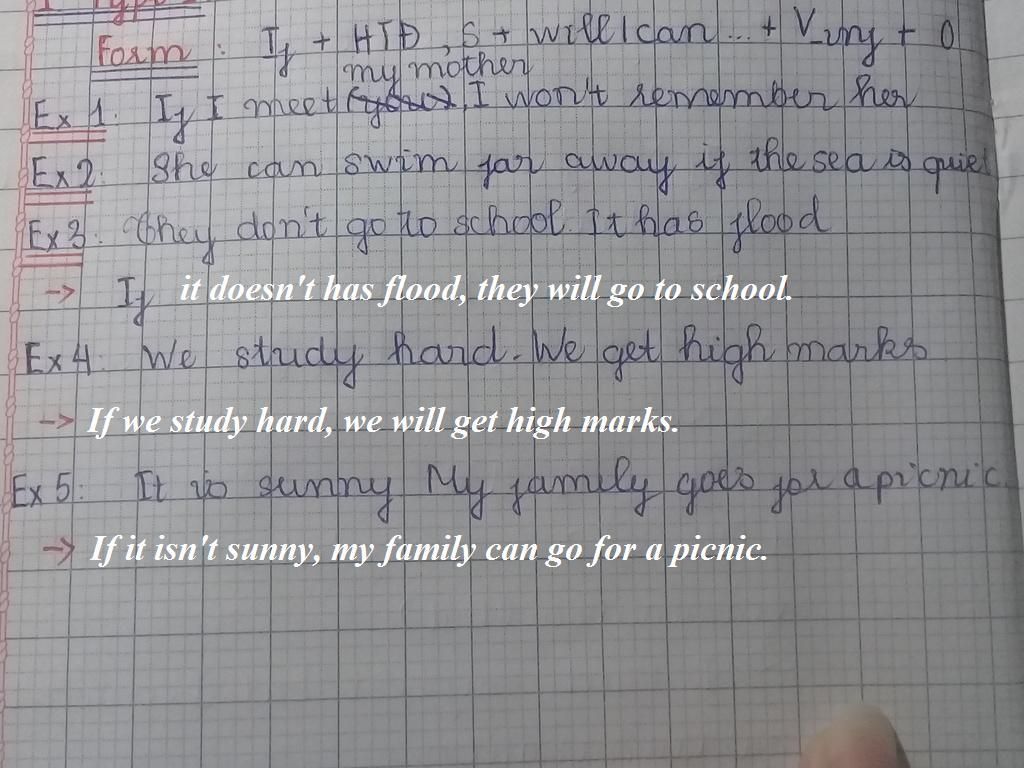 Form : If + HTĐ, S + will/can ... + V_inf + O
my mother
Ex 1: If I meet (your), I won't remember her
Ex 2: She can swim far away if the sea is quiet
Ex 3: They don't go to school. It has flood
→ If it doesn't has flood, they will go to school.
Ex 4: We study hard. We get high marks
→ If we study hard, we will get high marks.
Ex 5: It is sunny My family goes for a picnic.
→ If it isn't sunny, my family can go for a picnic.